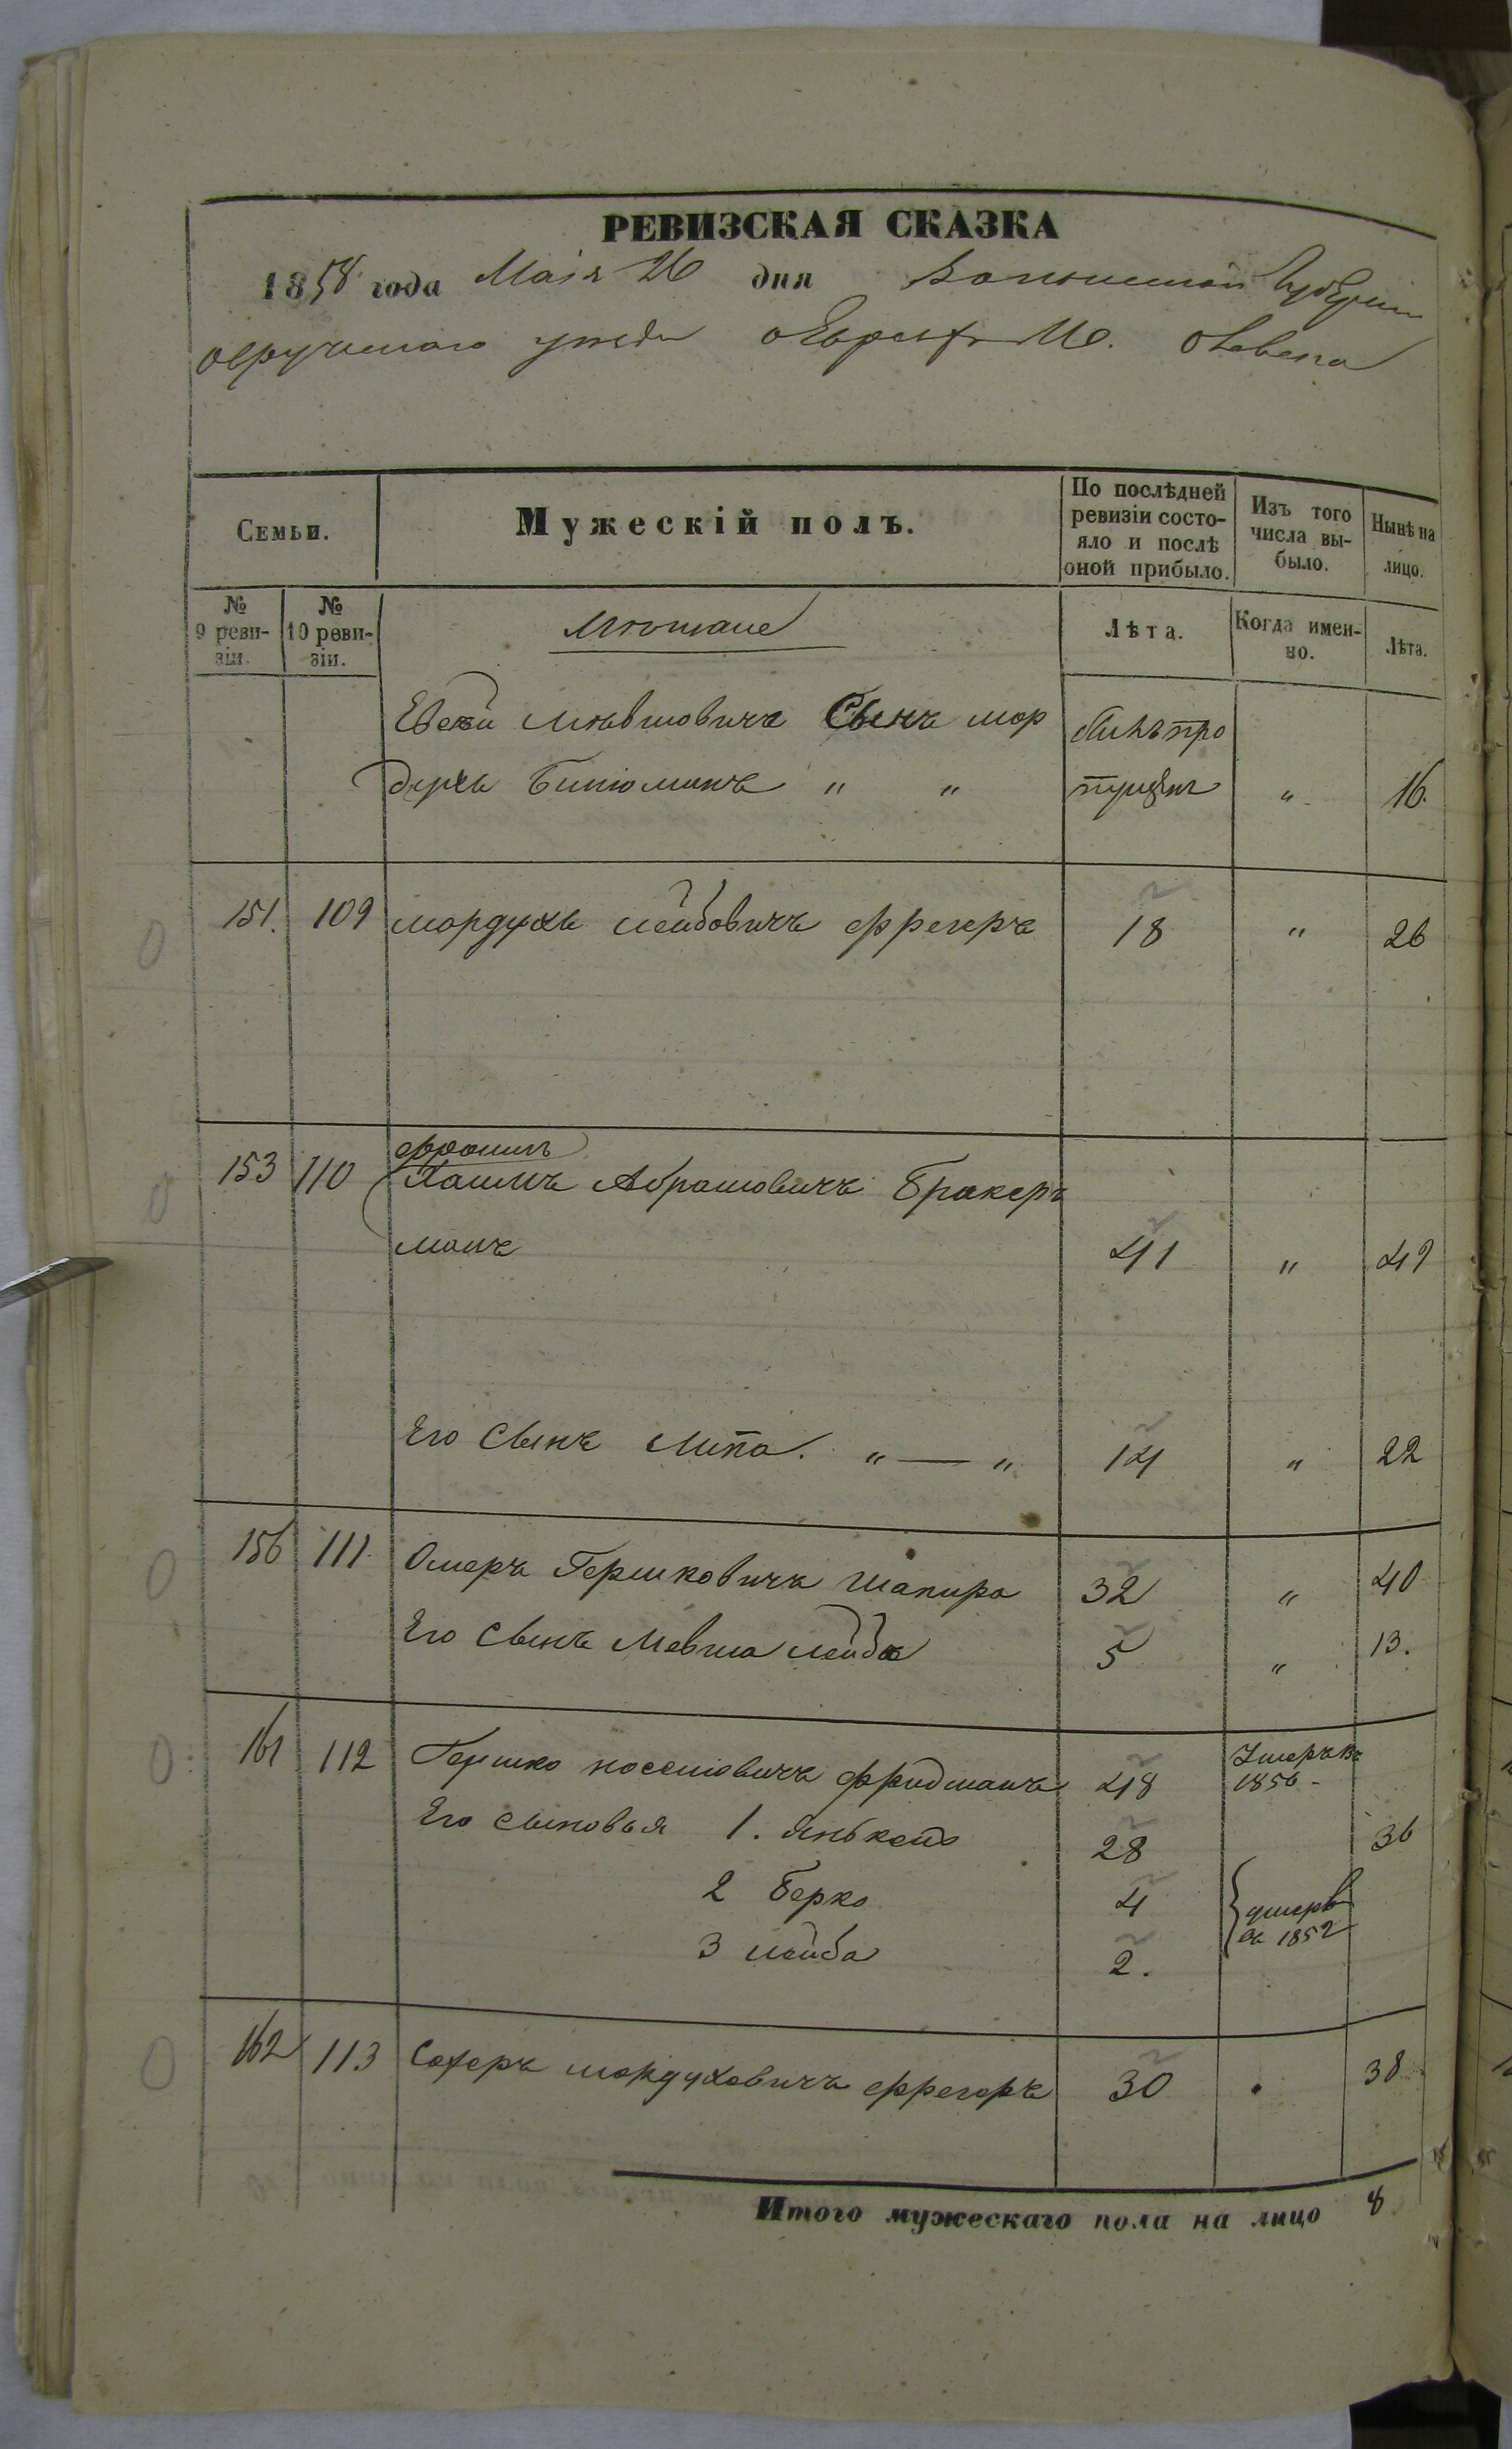 РЕВИЗСКАЯ СКАЗКА
1858 года Маія 26 дня Волынской Губерніи
Овручскаго уезда о Евреяхъ М. Олевска
Семьи.
Мужескій полъ.
По послѣдней ревизіи состо-яло и послѣ оной прибыло.
Изъ того числа вы-было.
Нынѣ на лицо.
№ 9 реви-зіи.
№ 10 реви-зіи.
Мѣщане
Лѣта.
Когда имен-но.
Лѣта.
Мовшовичъ Сынъ мор былъ про
духъ Биніоминъ " " пущенъ " 16.
151. 109 мордухъ лейбовичъ фрегеръ 18 " 26
153 110 Хаимъ Абрамовичъ Бракеръ
манъ 41 " 49
Его Сынъ Липа. " — " 14 " 22
156 111 Омеръ Гершковичъ Шапиро 32 " 40
Его Сынъ Мовша лейба 5 " 13.
161 112 Гершко носоновичъ фридманъ 48 Умеръ въ 1856
Его сыновья 1. Янькель 28 36
2 Берко 4 умеръ
3 лейба 2. въ 1852
162 113 Соферъ мордуховичъ фрегеръ 30 38
Итого мужескаго пола на лицо 8